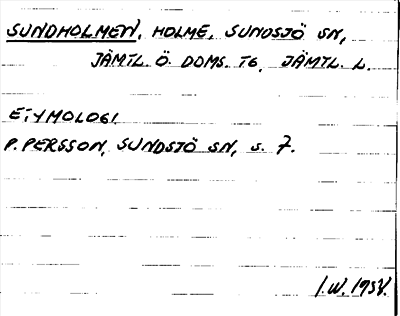 SUNDHOLMEN, HOLME, SUNDSJÖ SN,
JÄMTL. Ö. DOMS. TG, JÄMTL. L.
ETYMOLOGI.
P. PERSSON, SUNDSJÖ SN, S. 7.
I.W.